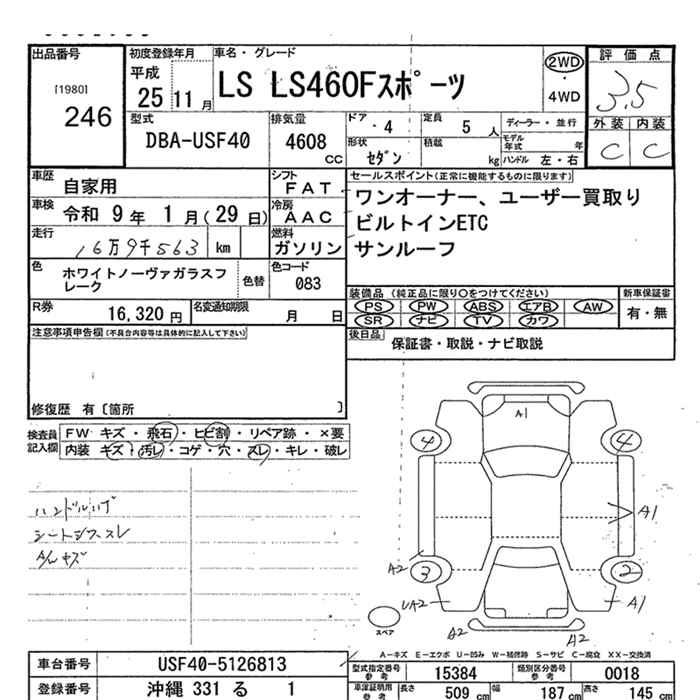 出品番号
[1980]
246
初度登録年月
平成
25 11 月
車名・グレード
LS LS460Fスポーツ
2WD
・
4WD
評価点
3.5
外装 内装
C C
型式
DBA-USF40
排気量
4608
CC
ドア
・4
定員
5 人
ディーラー・並行
形状
セダン
積載
kg
モデル
年式 年
ハンドル 左・右
車歴
自家用
シフト
FAT
車検
令和 9 年 1 月(29 日)
冷房
AAC
走行
16万9千563 km
燃料
ガソリン
色
ホワイトノーヴァガラスフ
レーク
色替
色コード
083
R券
16,320 円
名変通知期限
月 日
セールスポイント(正常に機能するものに限ります)
ワンオーナー、ユーザー買取り
ビルトインETC
サンルーフ
装備品 (純正品に限り○をつけてください)
PS PW ABS エアB AW
SR ナビ TV カワ
新車保証書
有・無
後日品
保証書・取説・ナビ取説
注意事項申告欄(不具合内容等は具体的に記入して下さい)
修復歴 有〔箇所 〕
検査員
記入欄
FW キズ・飛石・ヒビ割・リペア跡・×要
内装 キズ・汚レ・コゲ・穴・スレ・キレ・破レ
ハンドルハゲ
シートシワスレ
A/Wキズ
A1
4
4
A1
3
2
A2
UA2
A1
スペア
A2
A2
A-キズ E-エクボ U-凹み W-補修跡 S-サビ C-腐食 XX-交換済
車台番号
USF40-5126813
型式指定番号
参考
15384
類別区分番号
参考
0018
登録番号
沖縄 331 る 1
車庫証明用
参考
長さ
509 cm
幅
187 cm
高さ
145 cm